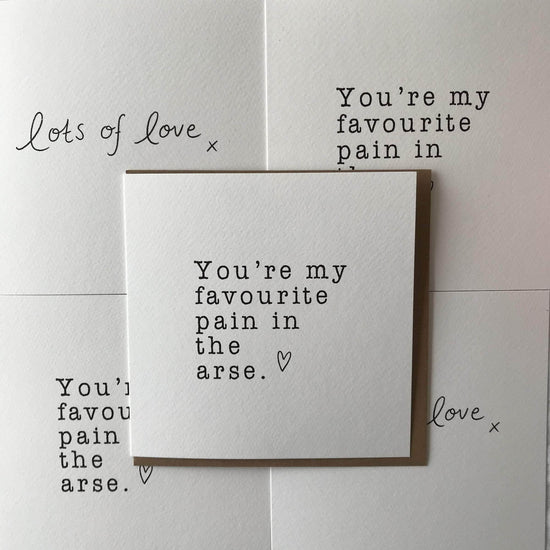 lots of love x
You're my
favourite
pain in
You're my
favourite
pain in
the
arse.
favou
pain
the
arse.
love x